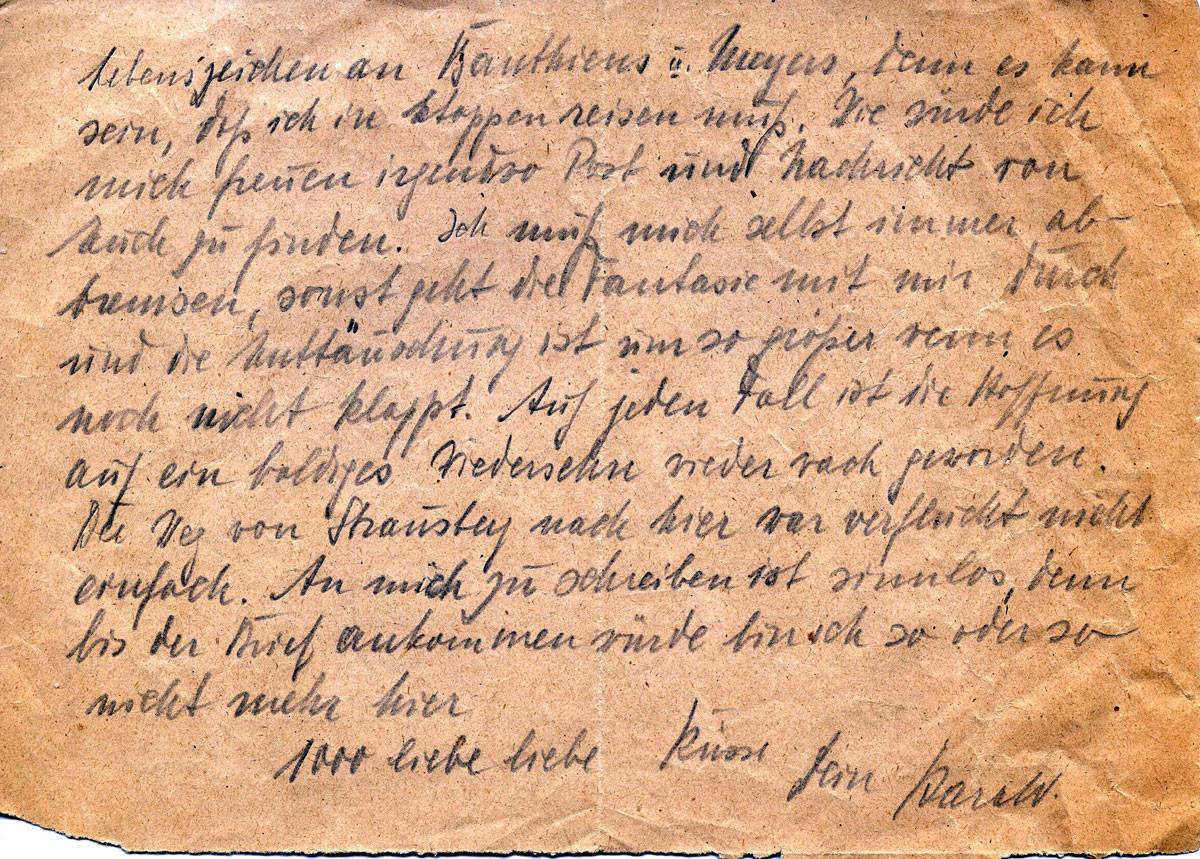 Lebenszeichen an Bauthiens u. Meyers, denn es kann
sein, daß ich in Etappen reisen muß. Wie würde ich
mich freuen irgendwo Post und Nachricht von
Euch zu finden. Ich muß mich selbst immer ab-
bremsen, sonst geht die Fantasie mit mir durch
und die Enttäuschung ist um so größer wenn es
noch nicht klappt. Auf jeden Fall ist die Hoffnung
auf ein baldiges Wiedersehn wieder wach geworden.
Der Weg von Strausberg nach hier war verflucht nicht
einfach. An mich zu schreiben ist sinnlos, denn
bis der Brief ankommen würde bin ich so oder so
nicht mehr hier
1000 liebe liebe Küsse Dein